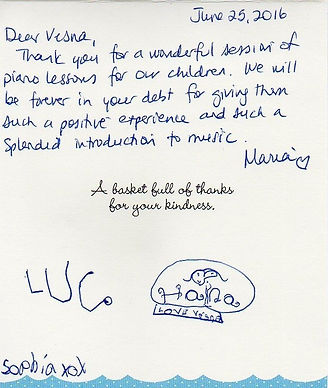 June 25, 2016
Dear Vesna,
Thank you for a wonderful session of
piano lessons for our children. We will
be forever in your debt for giving them
such a positive experience and such a
splendid introduction to music.
Maria
A basket full of thanks
for your kindness.
LUC.
Hana
LOVE
Sophia xox